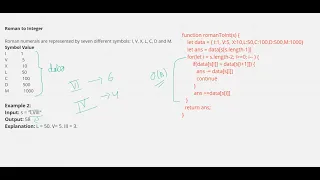 Roman to Integer
Roman numerals are represented by seven different symbols: I, V, X, L, C, D and M.
Symbol Value
I 1
V 5
X 10
L 50
C 100
D 500
M 1000
data
VI → 6
IV → 4
O(n)
Example 2:
Input: s = "LVIII"
Output: 58
Explanation: L = 50, V= 5, III = 3.
function romanToInt(s) {
let data = { I:1, V:5, X:10,L:50,C:100,D:500,M:1000}
let ans = data[s[s.length-1]]
for(let i = s.length-2; i>=0; i-- ) {
if(data[s[i]] < data[s[i+1]]) {
ans -= data[s[i]]
continue
}
ans +=data[s[i]]
}
return ans;
}